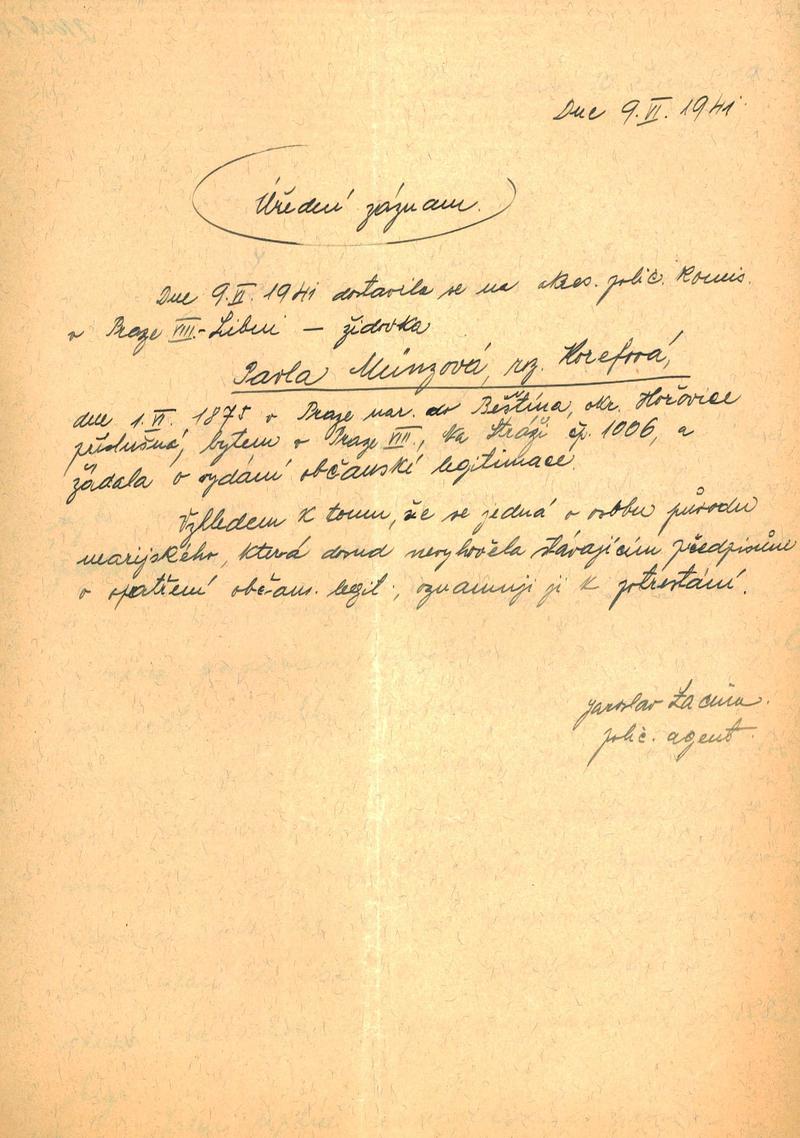 Dne 9. VI. 1941
Úřední záznam.
Dne 9. VI. 1941 dostavila se na okres. polic. komis.
v Praze VIII.-Libni — židovka
Pavla Münzová, roz. Horefová,
dne 1. VI. 1875 v Praze nar. do Beštína, okr. Hořovice
příslušná, bytem v Praze VIII., Na Stráži čp. 1006, a
žádala o vydání občanské legitimace.
Vzhledem k tomu, že se jedná o osobu původu
nearijského, která dosud nevyhověla stávajícím předpisům
o opatření občans. legit., oznamuji ji k potrestání.
Jaroslav
polic. agent.